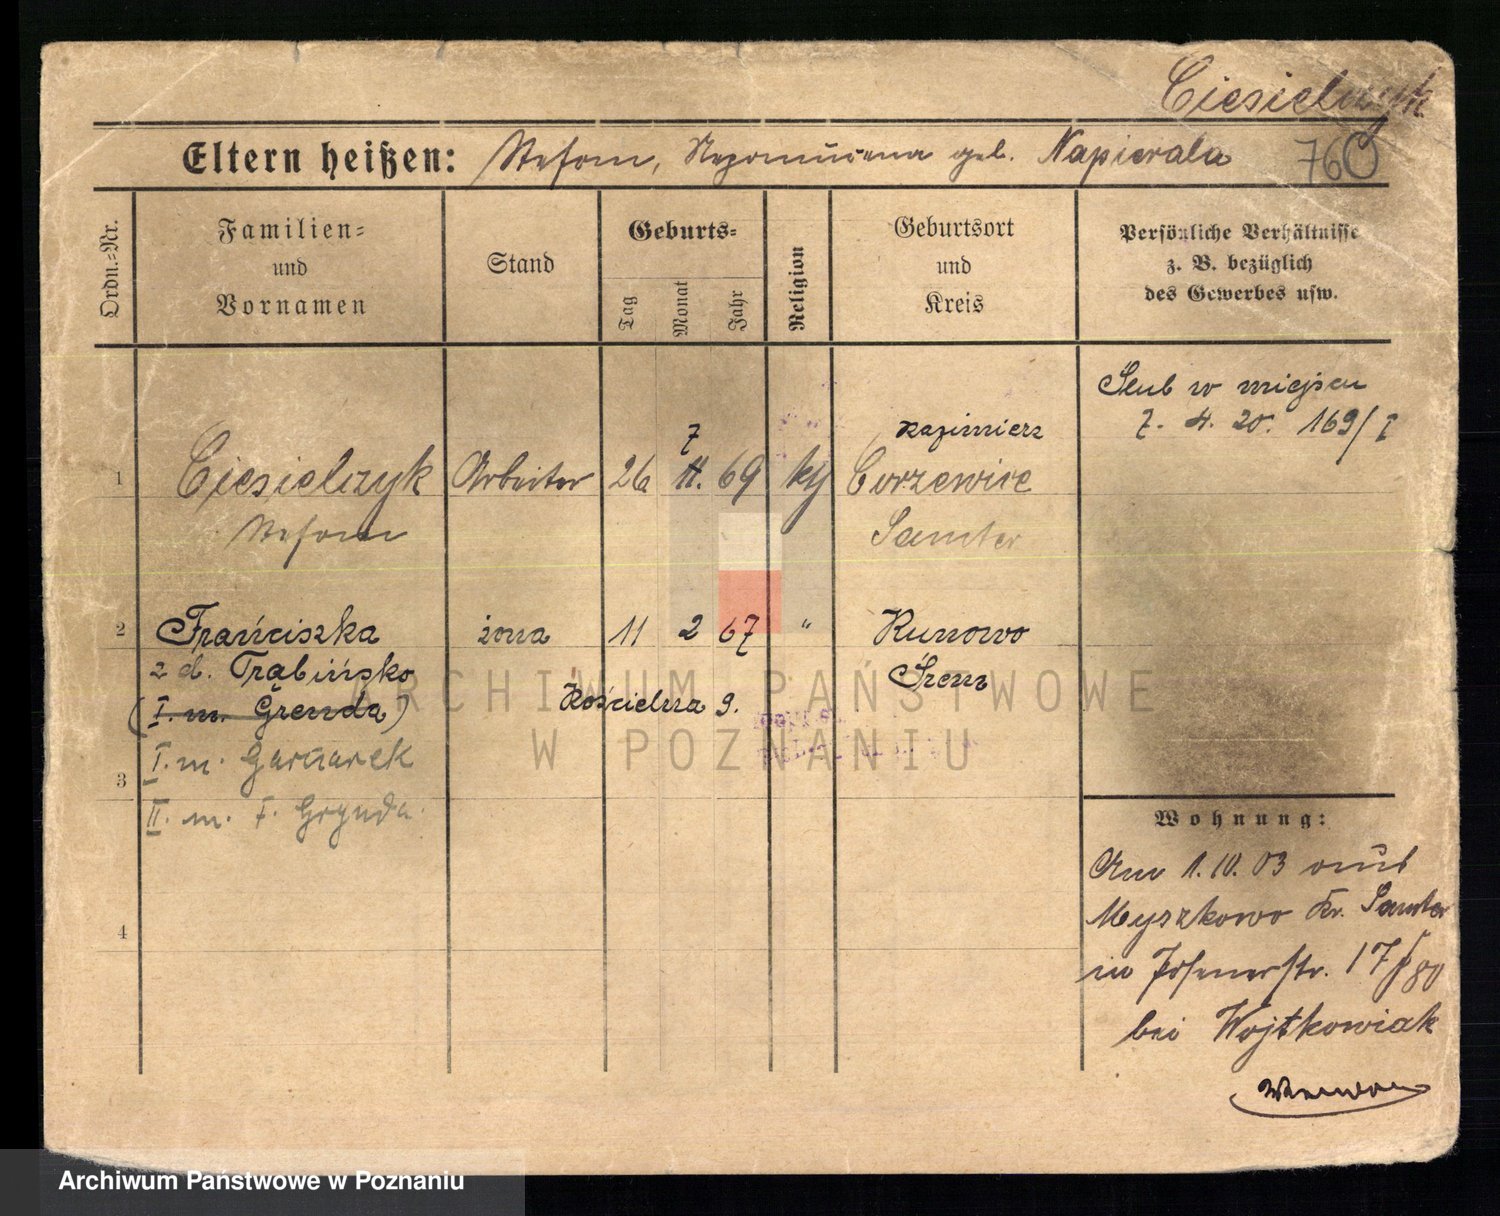 Ciesielczyk
Eltern heißen: Stefan, Nepomucena geb. Napierala 760
Ordn.-Nr.
Familien-
und
Vornamen
Stand
Geburts-
Tag
Monat
Jahr
Religion
Geburtsort
und
Kreis
Persönliche Verhältnisse
z. B. bezüglich
des Gewerbes usw.
Ślub w miejscu
7. 4. 20. 169/I
7
Kazimierz
1 Ciesielczyk Arbeiter 26 11. 69 Gorzewice
Stefan Samter
2 Franciszka żona 11 2 67 " Kunowo
z d. Trąbińsko Śrem
(I. m. Grenda) Kościelna 9.
I. m. Garnarek
3
II. m. F. Grynda.
4
Wohnung:
Am 1.10.03 aus
Myszkowo Kr. Samter
in Posenerstr. 17/80
bei Wojtkowiak
ARCHIWUM PAŃSTWOWE
W POZNANIU
Archiwum Państwowe w Poznaniu